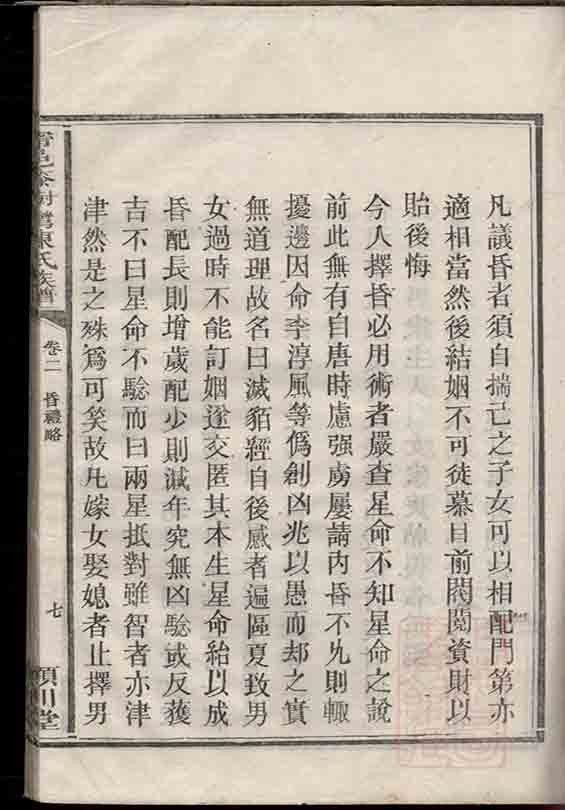 凡議昏者須自揣己之子女可以相配門第亦
適相當然後結姻不可徒慕目前閥閱資財以
貽後悔
今人擇昏必用術者嚴查星命不知星命之說
前此無有自唐時慮强虜屢請內昏不允則輙
擾邊因命李淳風等僞創凶兆以愚而却之實
無道理故名曰滅貊經自後惑者遍區夏致男
女過時不能訂姻遂交匿其本生星命紿以成
昏配長則增歲配少則減年究無凶騐或反獲
吉不曰星命不騐而曰兩星抵對雖智者亦津
津然是之殊爲可笑故凡嫁女娶媳者止擇男
陳氏族譜
卷二
昏禮略
七
頴川堂